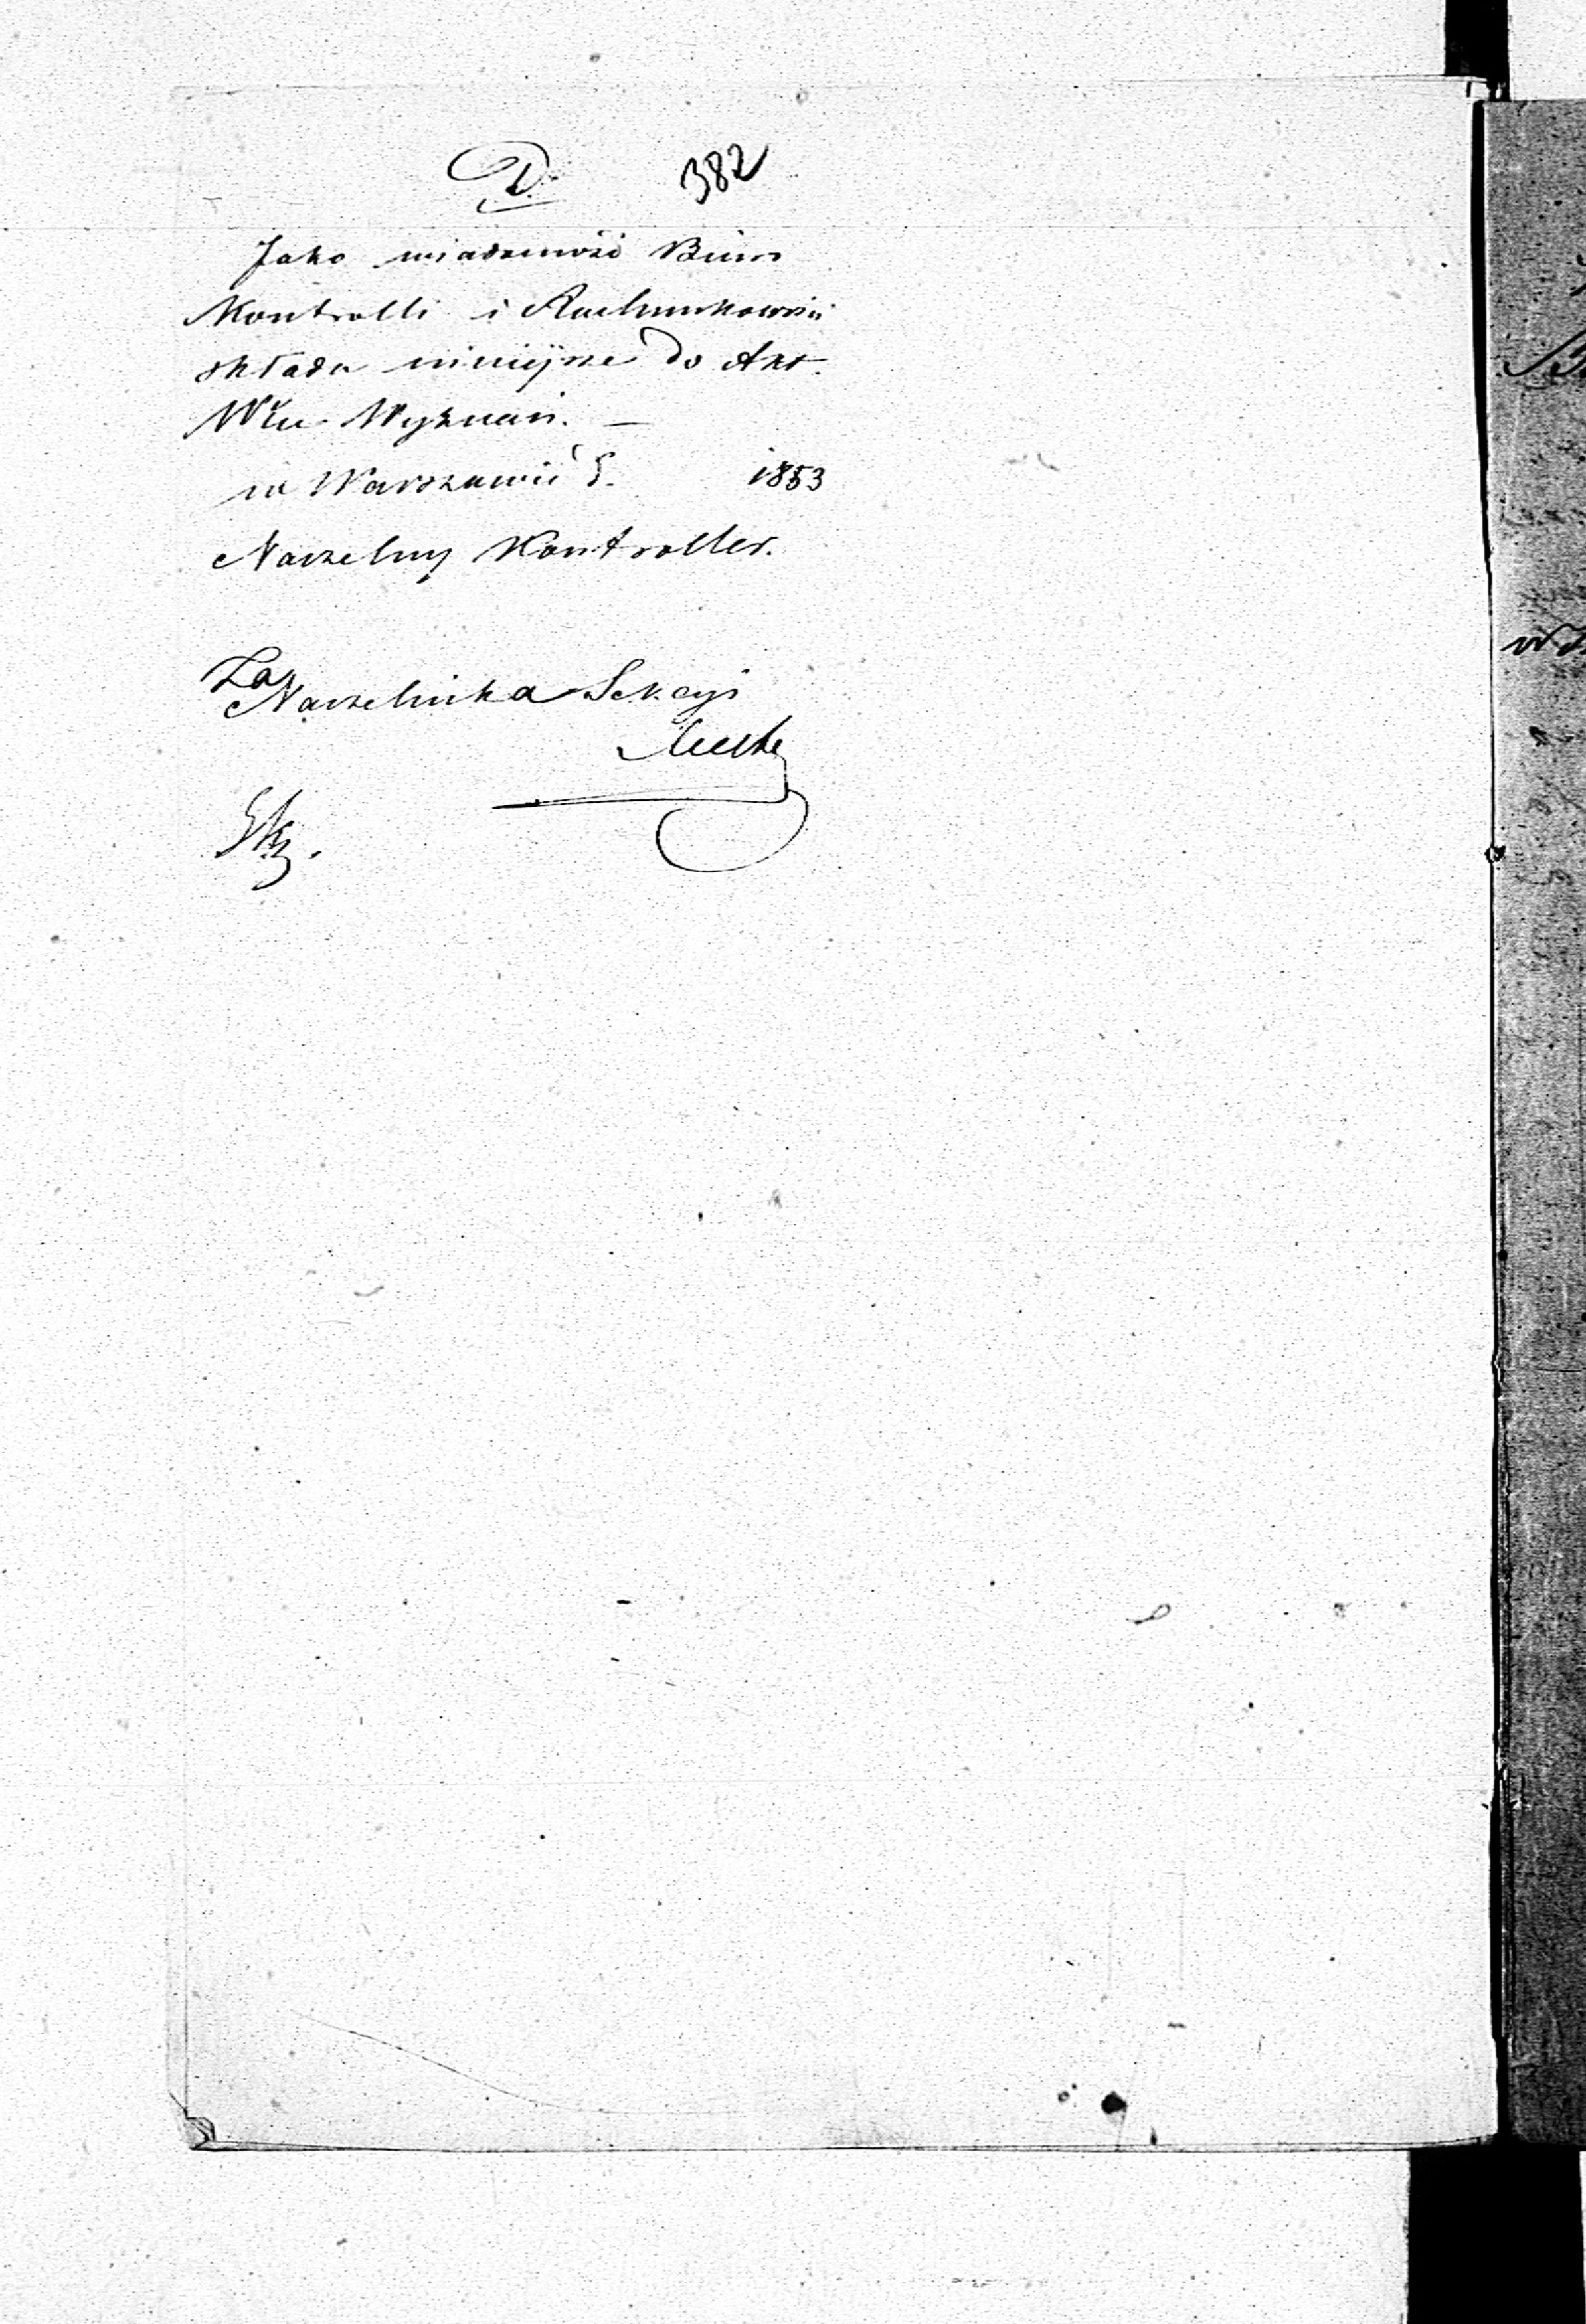 D. 382
Jako wiadomość Biuro
Kontrolli i Rachunkowości
składa niniejsze do Akt.
Włu Wyznań. —
w Warszawie d. 1853
Naczelny Kontroller.
Za Naczelnika Sekcyi